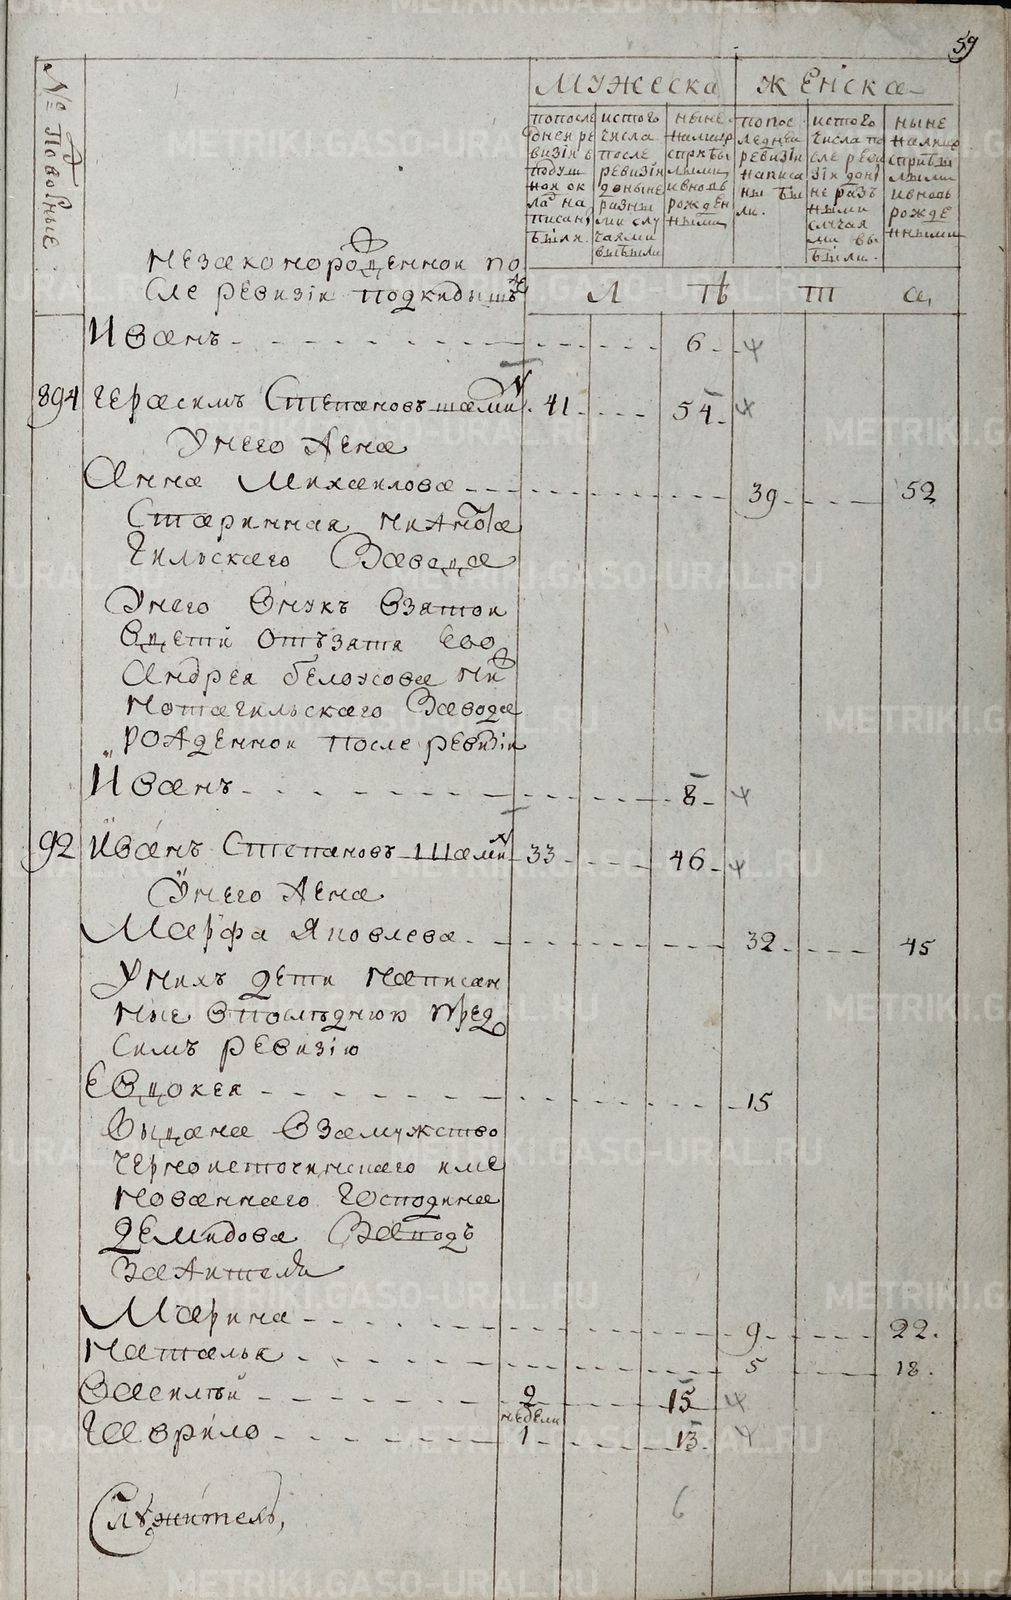 59
№ подворные
мужеска
женска
по после
дней ре
визіи в
подуш
ной ок
лад на
писан,
было.
ис того
числа
после
ревизіи
доныне
разны
ми слу
чаями
выбыли
ныне
налицо
с прибы
лыми
и вновь
рожден
ными
по пос
ледней
ревизіи
написа
ны бы
ли.
ис того
числа по
сле реви
зіи доны
не разъ
ными
случая
ми вы
были.
ныне
на лицо
с прибы
лыми
и вновь
рожде
нными
незаконорожденной по
сле ревизіи подкидыш
л ѣ т а
Иванъ 6
894 Герасимъ Степановъ шамин 41 54
У него жена
Анна Михаилова 39 52
Старинная нижнота
гильскаго Завода
У него внукъ взятой
в дети отъ зятя ево
Андрея белоусова ни
жнотагильскаго Завода
рожденной после ревизіи
Иванъ 8
92 Иванъ Степановъ Шамин 33 46
У него жена
Марфа Яковлева 32 45
У нихъ дети написан
ные в последнюю пред
симъ ревизію
Евдокея 15
выдана в замужство
черноисточинскаго име
нованнаго Господина
демидова Заводъ
за жителя
Марина 9 22.
Наталья 5 18.
Василей 2 недели 15
Гаврило 1 13
6
Служитель,